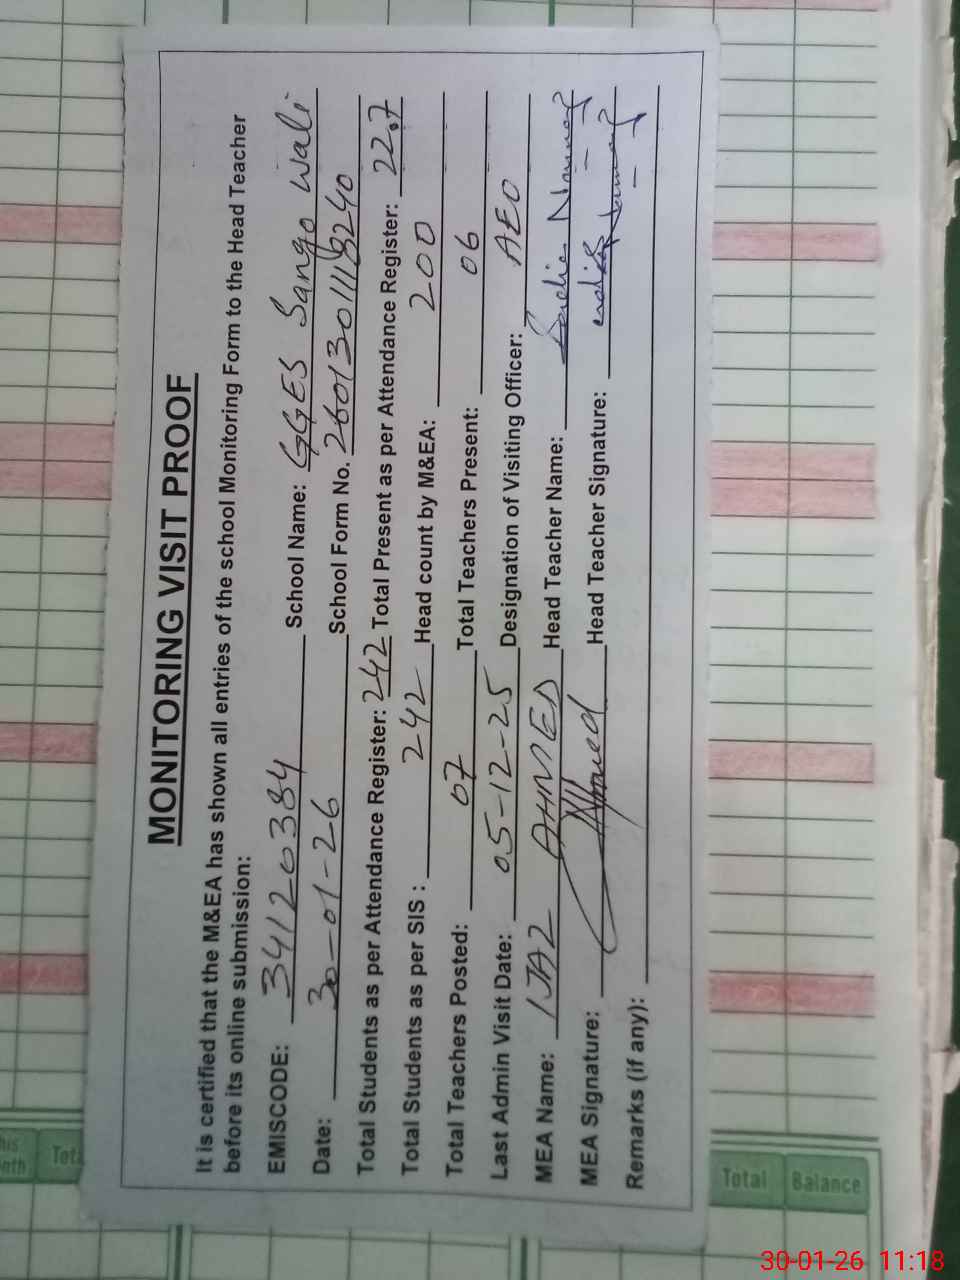 MONITORING VISIT PROOF
It is certified that the M&EA has shown all entries of the school Monitoring Form to the Head Teacher
before its online submission:
EMISCODE: 34120384 School Name: GGES Sango Wali
Date: 30-01-26 School Form No. 2601301118240
Total Students as per Attendance Register: 242 Total Present as per Attendance Register: 227
Total Students as per SIS : 242 Head count by M&EA: 200
Total Teachers Posted: 07 Total Teachers Present: 06
Last Admin Visit Date: 05-12-25 Designation of Visiting Officer: AEO
MEA Name: IJAZ AHMED Head Teacher Name:
MEA Signature: Head Teacher Signature:
Remarks (if any):
Total Balance
30-01-26 11:18